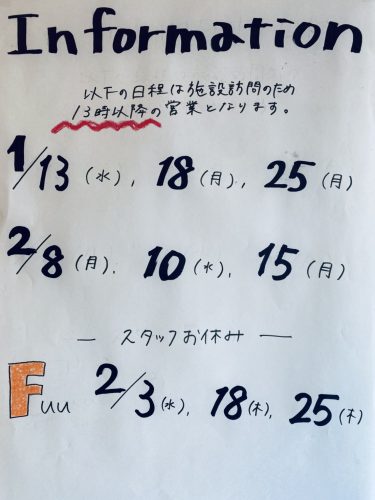 Information
以下の日程は施設訪問のため
13時以降の営業となります。
1/13(水), 18(月), 25(月)
2/8(月), 10(水), 15(月)
— スタッフお休み —
Fuu 2/3(水), 18(木), 25(木)